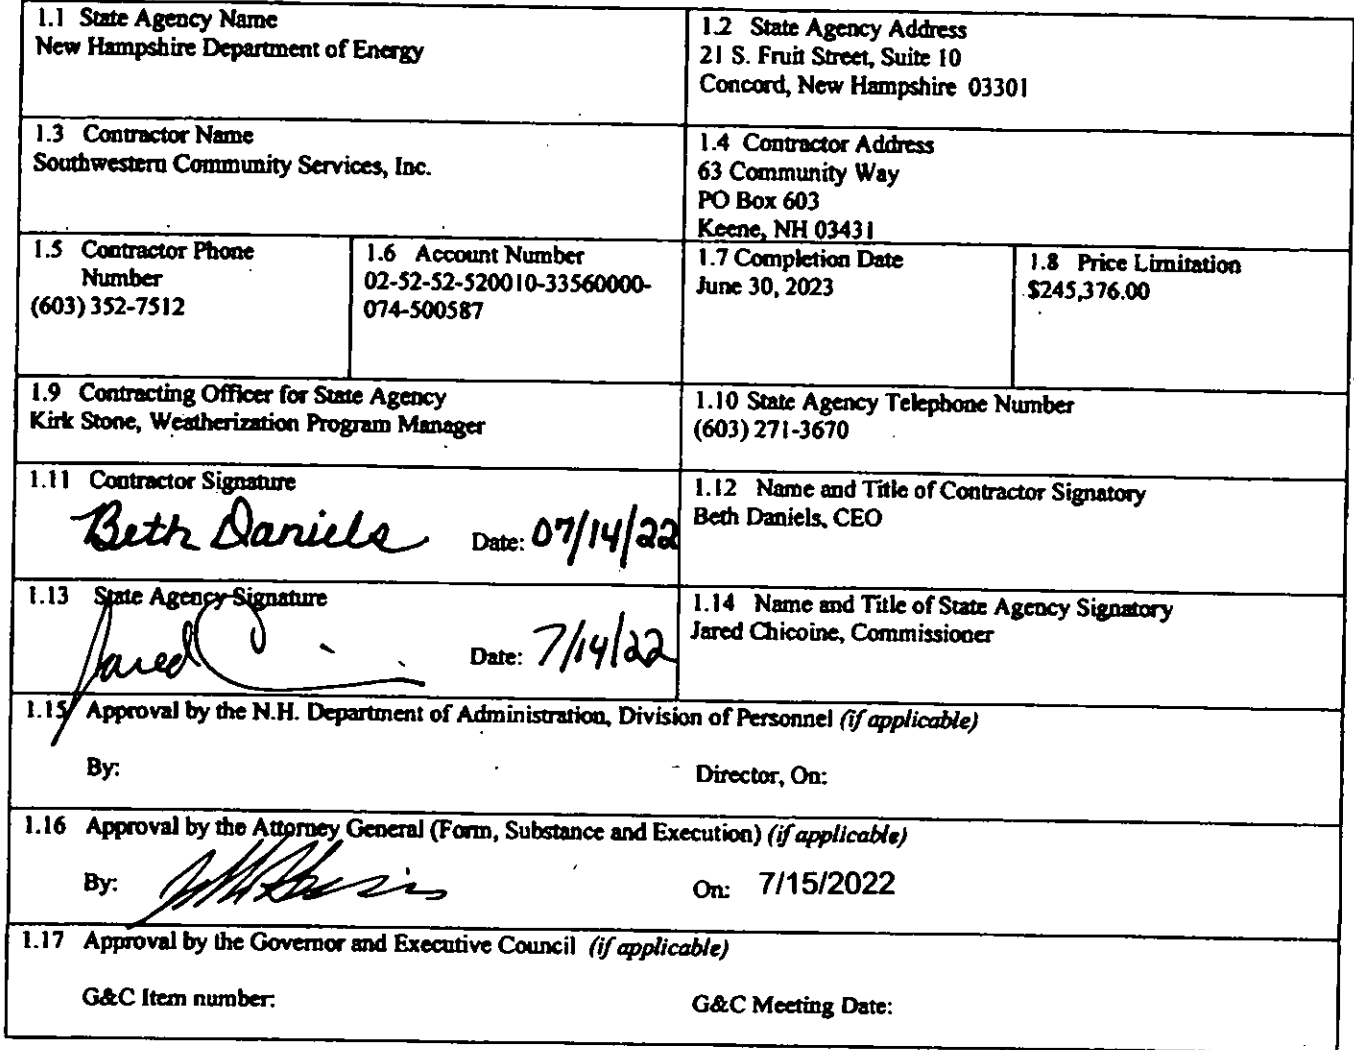 1.1 State Agency Name
New Hampshire Department of Energy
1.2 State Agency Address
21 S. Fruit Street, Suite 10
Concord, New Hampshire 03301
1.3 Contractor Name
Southwestern Community Services, Inc.
1.4 Contractor Address
63 Community Way
PO Box 603
Keene, NH 03431
1.5 Contractor Phone
Number
(603) 352-7512
1.6 Account Number
02-52-52-520010-33560000-
074-500587
1.7 Completion Date
June 30, 2023
1.8 Price Limitation
$245,376.00
1.9 Contracting Officer for State Agency
Kirk Stone, Weatherization Program Manager
1.10 State Agency Telephone Number
(603) 271-3670
1.11 Contractor Signature
Beth Daniels Date: 07/14/22
1.12 Name and Title of Contractor Signatory
Beth Daniels, CEO
1.13 State Agency Signature
Jared Date: 7/14/22
1.14 Name and Title of State Agency Signatory
Jared Chicoine, Commissioner
1.15 Approval by the N.H. Department of Administration, Division of Personnel (if applicable)
By: Director, On:
1.16 Approval by the Attorney General (Form, Substance and Execution) (if applicable)
By: On: 7/15/2022
1.17 Approval by the Governor and Executive Council (if applicable)
G&C Item number: G&C Meeting Date: